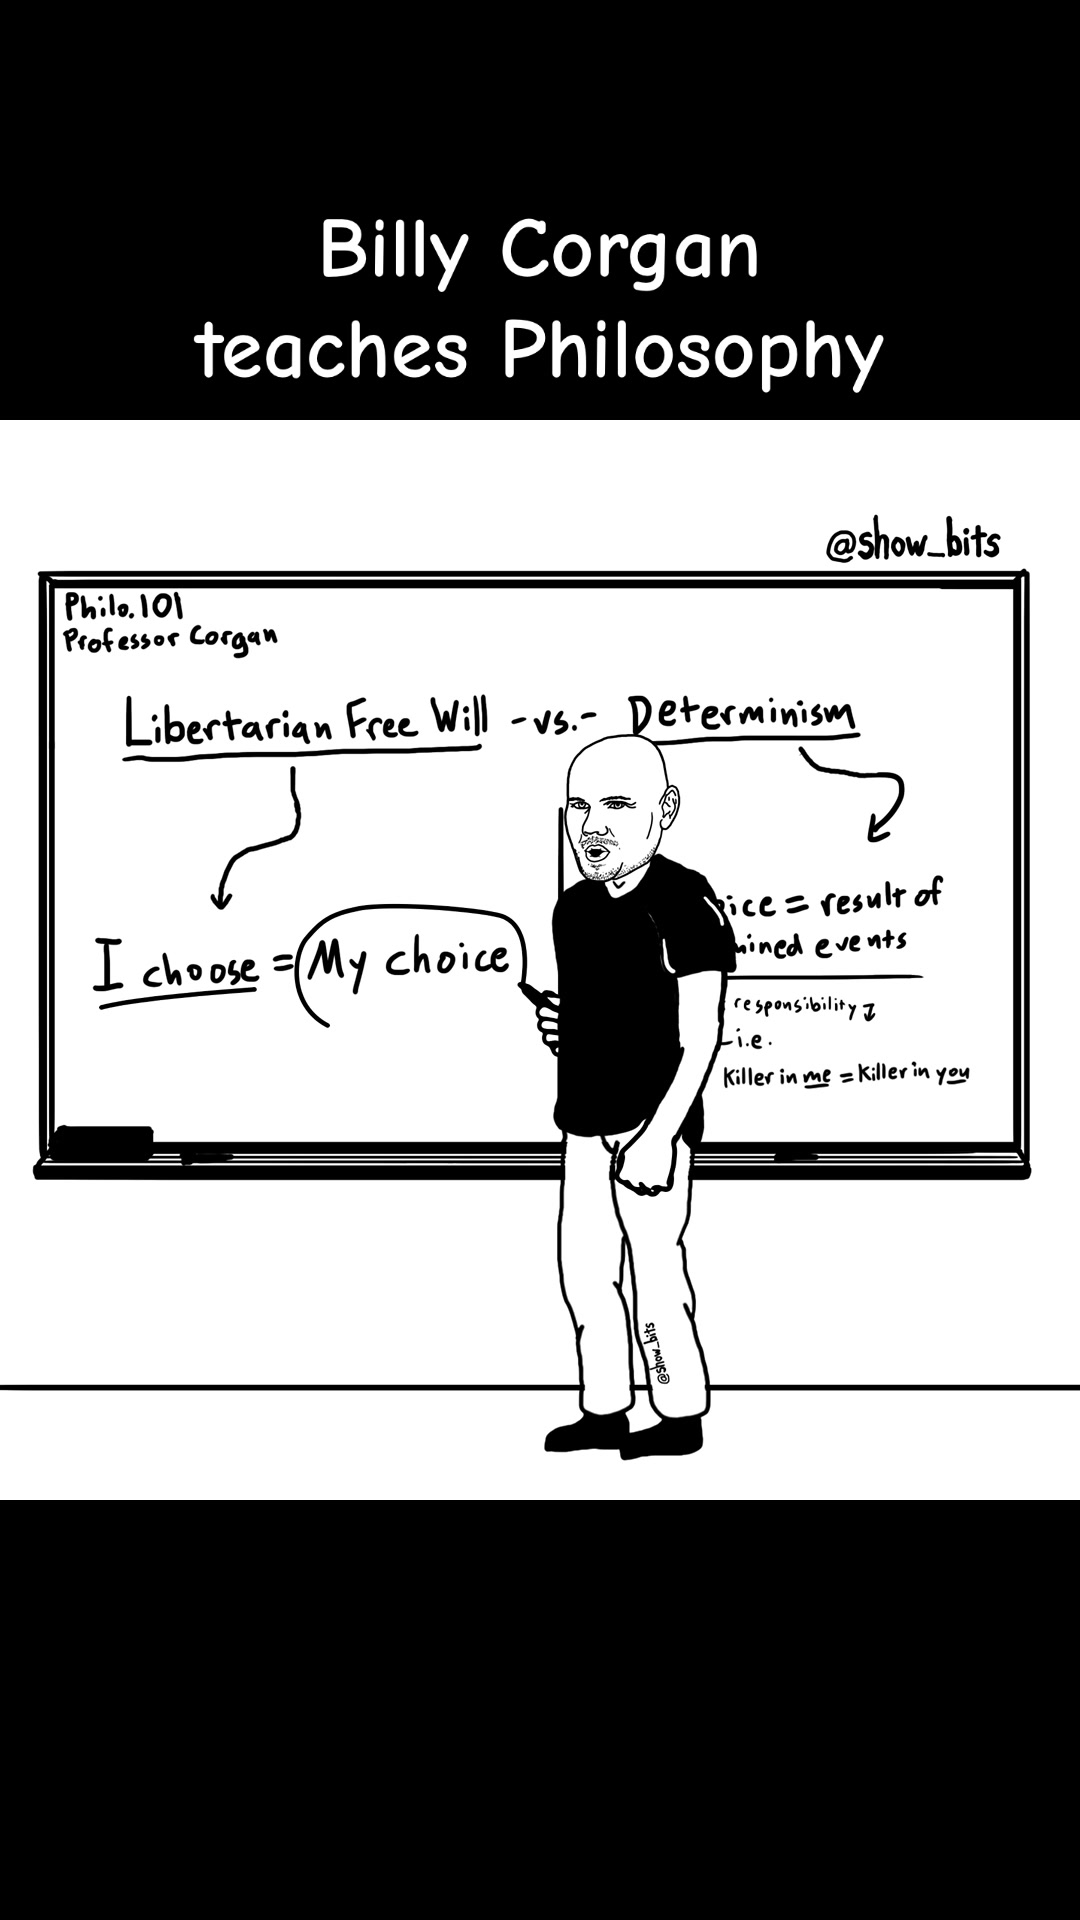 Billy Corgan
teaches Philosophy
@show_bits
Philo.101
Professor Corgan
Libertarian Free Will -vs.- Determinism
I choose = My choice
ice = result of
mined events
responsibility ↓
-i.e.
Killer in me = Killer in you
@show_bits